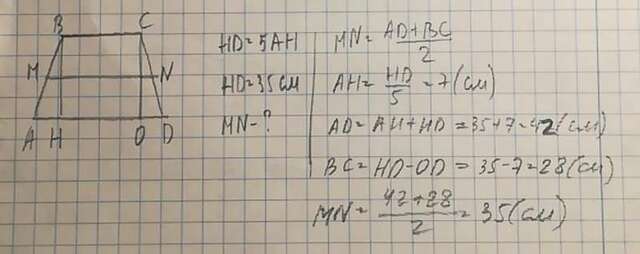 B C
M N
A H O D
HD=5AH
HD=35см
MN-?
MN= AD+BC/2
AH= HD/5 =7(см)
AD=AH+HD=35+7=42(см)
BC=HD-OD=35-7=28(см)
MN= 42+28/2 =35(см)